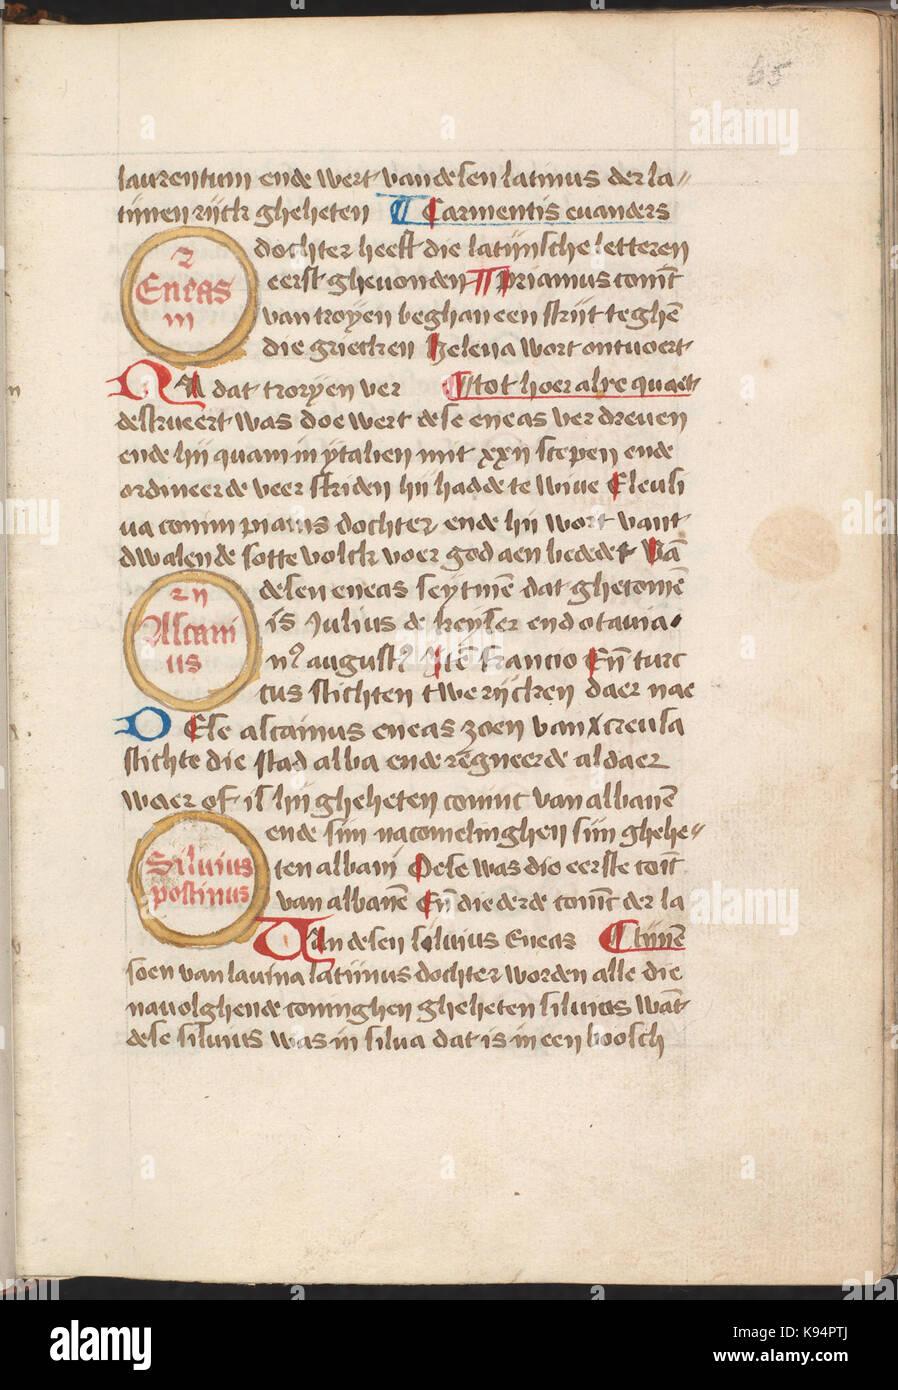 65
laurentum ende wert van desen latinus der la⸗
tijnen rijck gheheten Carmentis euanders
dochter heeft die latijnsche letteren
eerst gheuonden priamus coninc
van troyen beghan een strijt teghē
die griecken helena wort ontvoert
Eneas
iii
NA dat troryen ver tot hoer alre quaet
destrueert was doe wert dese eneas verdreuen
ende hij quam in ytalien mit xxij scepen ende
ordineerde veer striden hij hadde te wiue Eleusi
ua conincx piamus dochter ende hij wort vant
dwalende sotte volck voer god aen bedet Vā
desen eneas seytmē dat ghecomē
is Julius de keyser end otauia
nꝰ augustꝰ Jtē francio Eñ turc
cus stichten twe rijcken daer nae
Ascani
us
DEse ascanius eneas zoen van creusa
stichte die stad alba ende regneerde aldaer
weder of is hij gheheten coninc van albanē
ende sijn nacomelinghen sijn ghehe⸗
ten albani Dese was die eerste conīc
van albanē Eñ die derde conīc der la
Siluius
postinus
VAn desen siluius Eneas tijnē
soen van lauina latinus dochter worden alle die
nauolghende coninghen gheheten siluios wāt
dese siluius was in silua dat is in een boosch
alamy
alamy
Image ID: K94PTJ
www.alamy.com